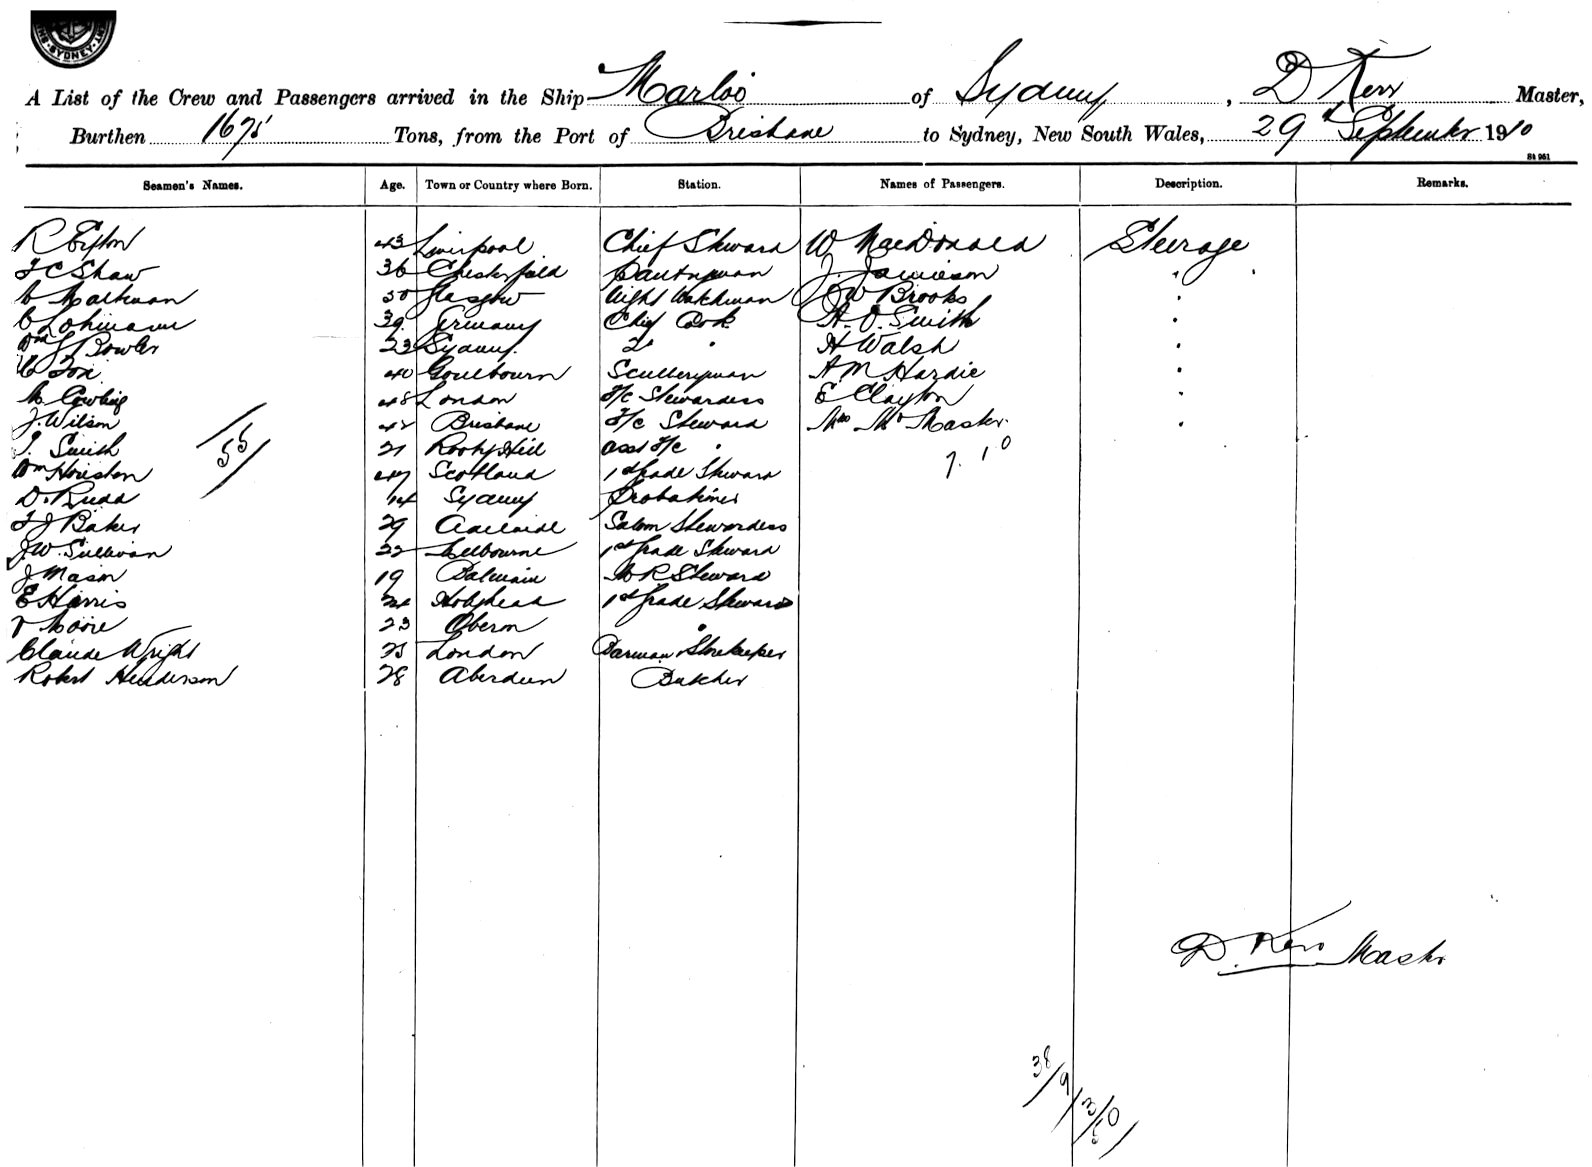 SYDNEY
A List of the Crew and Passengers arrived in the Ship Marloo of Sydney, D Kerr Master,
Burthen 1675 Tons, from the Port of Brisbane to Sydney, New South Wales, 29th September 1910
St 961
Seamen's Names. Age. Town or Country where Born. Station. Names of Passengers. Description. Remarks.
R 43 Liverpool Chief Steward W MacDonald Steerage
F C Shaw 36 Chesterfield Pantryman J. Jamieson "
50 Glasgow Night Watchman J W Brooks "
C Lohmann 39 Germany Chief Cook A. O. Smith "
Wm J Bowler 23 Sydney 2d " H Walsh "
C Fox 40 Goulbourn Sculleryman A M Hardie "
M Cowling 48 London F/c Stewardess E Clayton "
J. Wilson 42 Brisbane F/c Steward Mrs McMaster "
J. Smith 21 Rooty Hill asst F/c "
Wm Houston 47 Scotland 1st grade Steward
D. Rudd 14 Sydney Probationer
F J Baker 29 Adelaide Saloon Stewardess
J. W. Sullivan 22 Melbourne 1st grade Steward
J Mason 19 Balmain M R Steward
E Harris 24 Holyhead 1st grade Steward
V Moore 23 Oberon "
Claude Wright 25 London Barman & Storekeeper
Robert Henderson 28 Aberdeen Butcher
55
7. 1 0
D. Kerr Master
38/9/3/50